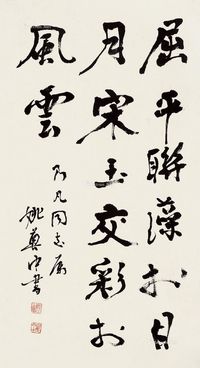 屈平聯藻於日
月宋玉交彩於
風雲
乃凡同志属
姚奠中書